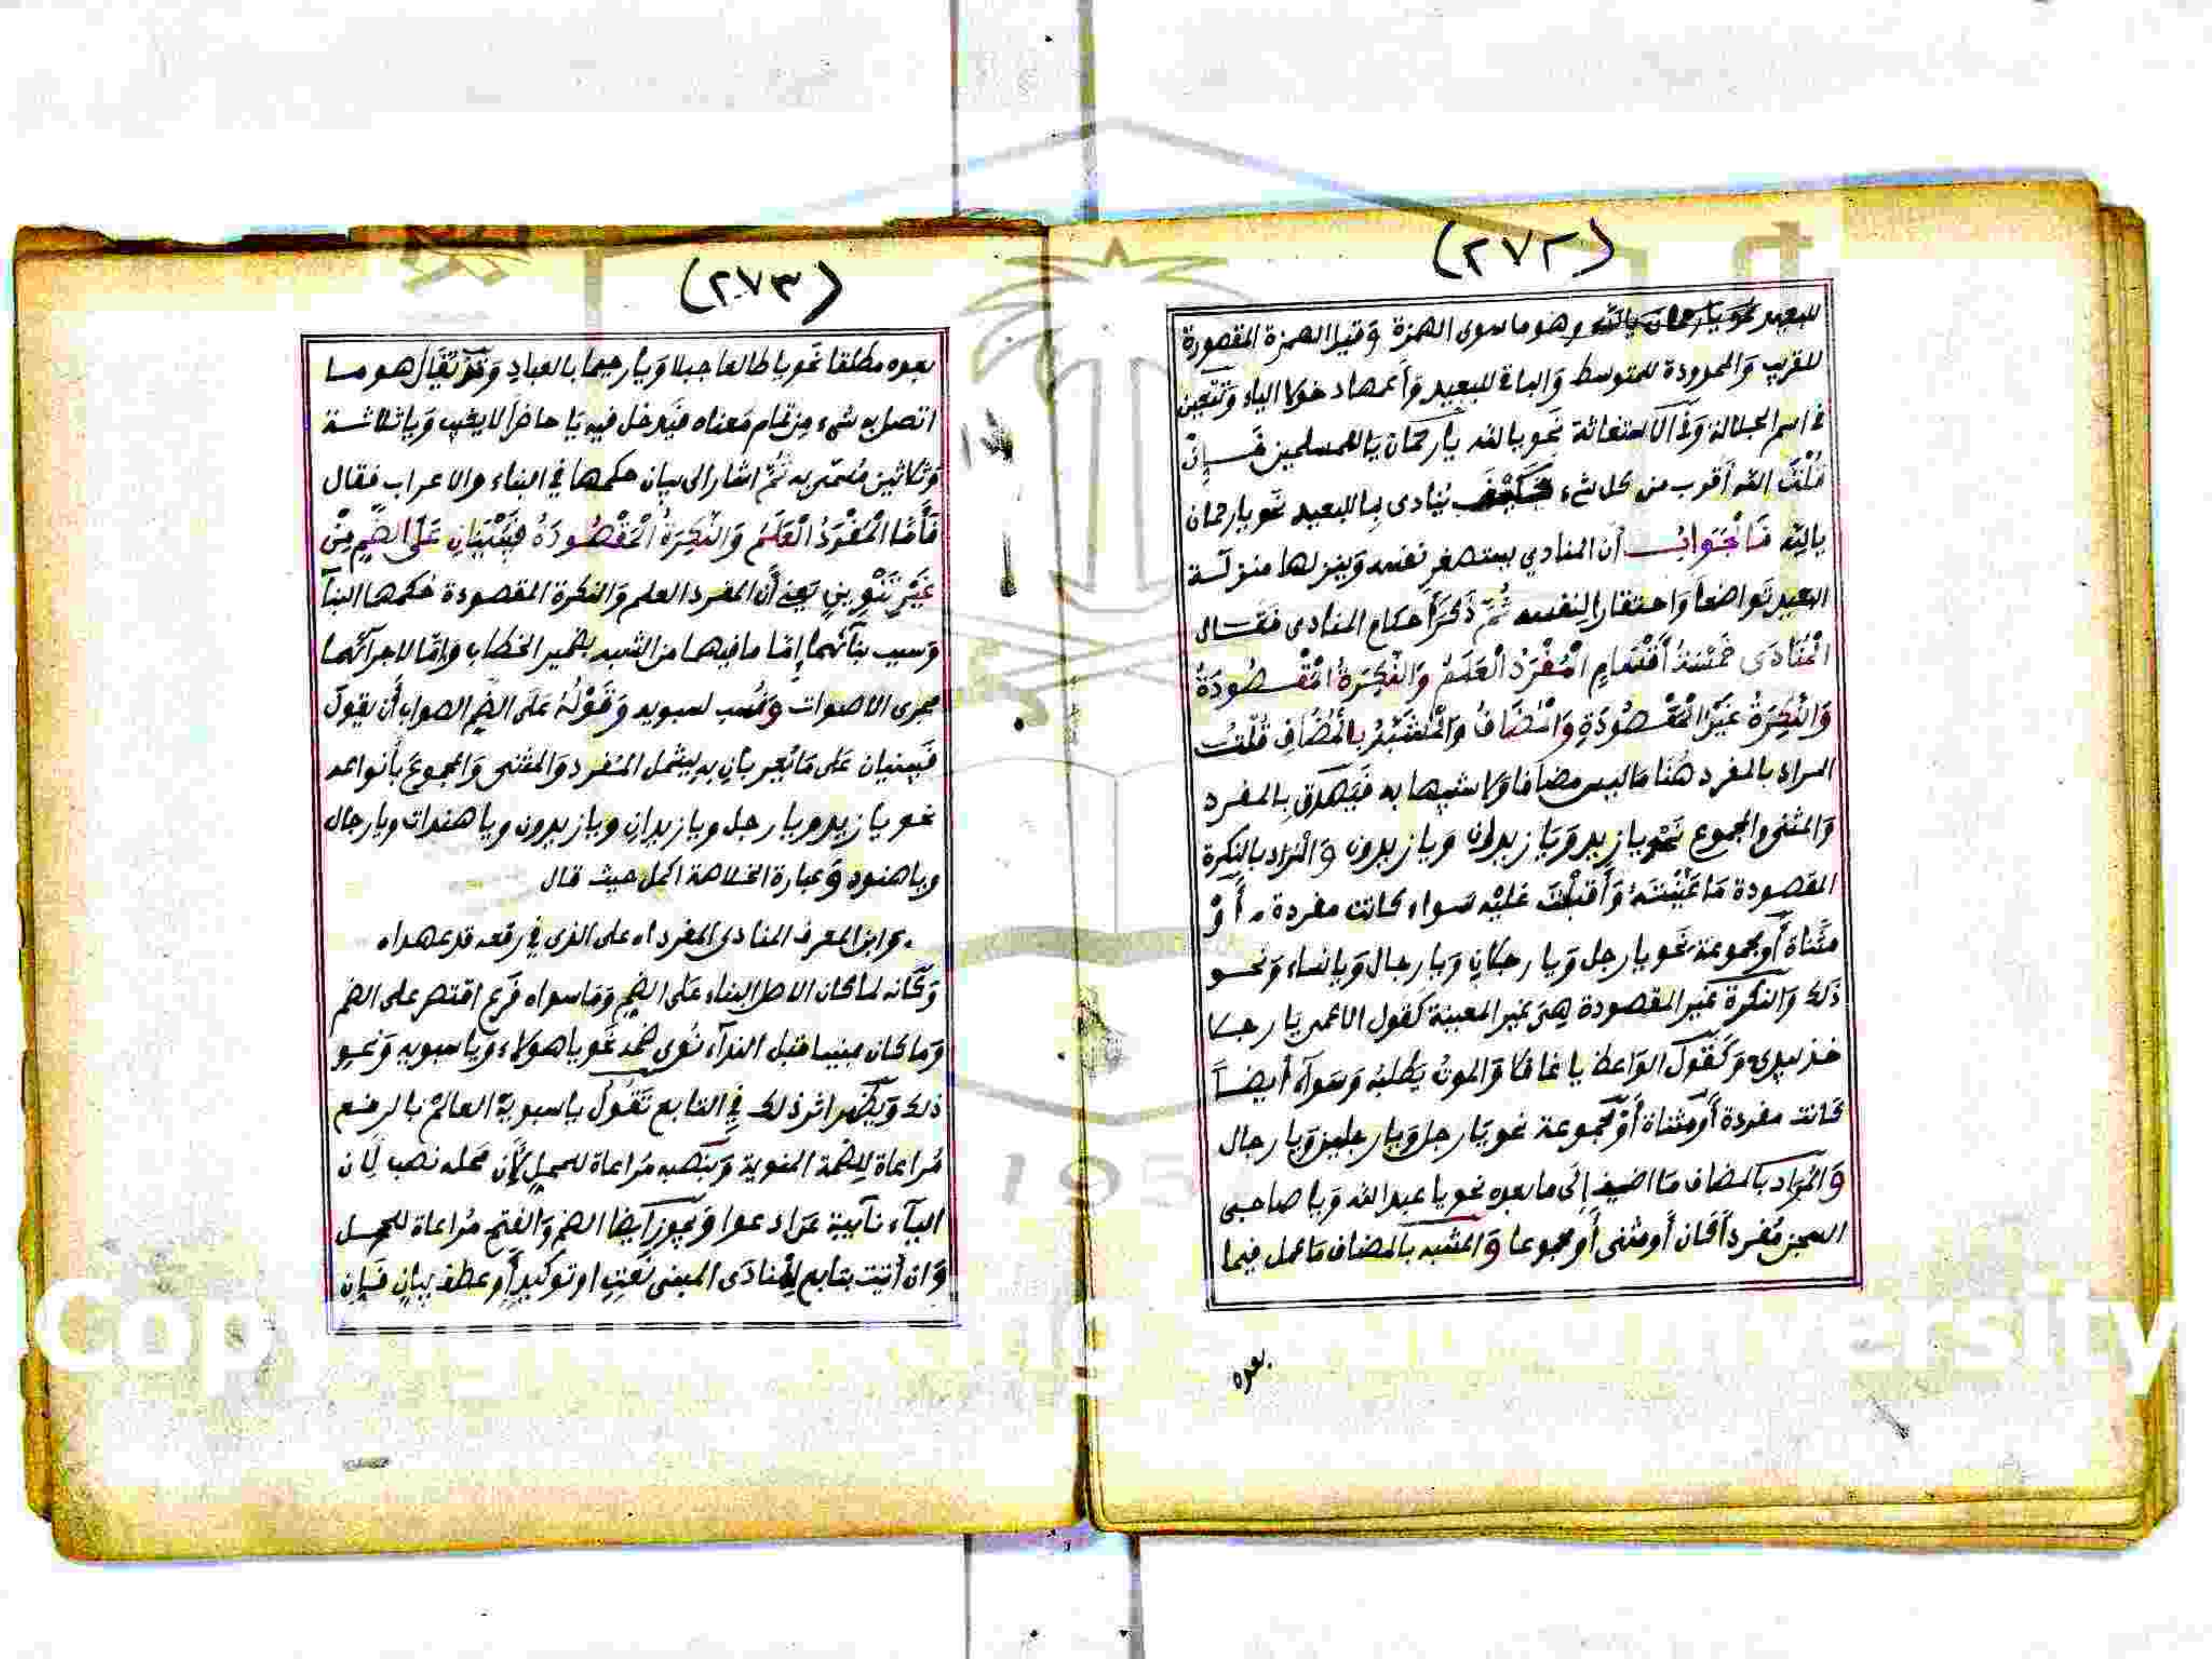 (٢٧٢)
للبعيد نحو يا رحمان يا الله وهو ما سوى الهمزة وقيل الهمزة المقصورة
للقريب والممدودة للمتوسط والباقي للبعيد وأعمها دخولا الياء وتتعين
في اسم الجلالة وفي الاستغاثة نحو يا الله يا رحمان يا للمسلمين فَإِنْ
قُلْتَ الله أقرب من كل شيء فكيف ينادى بيا للبعيد نحو يا رحمان
يا الله فَالْجَوَابُ أن المنادي يستصغر نفسه وينزلها منزلة
البعيد تواضعاً واحتقارا لنفسه ثُمَّ ذَكَرَ أحكام المنادى فقال
الْمُنَادَى خَمْسَةُ أَقْسَامٍ الْمُفْرَدُ الْعَلَمُ وَالنَّكِرَةُ الْمَقْصُودَةُ
وَالنَّكِرَةُ غَيْرُ الْمَقْصُودَةِ وَالْمُضَافُ وَالْمُشَبَّهُ بِالْمُضَافِ قُلْتُ
المراد بالمفرد هنا ما ليس مضافا ولا شبيها به فيصدق بالمفرد
والمثنى والمجموع نحو يا زيد ويا زيدان ويا زيدون والمراد بالنكرة
المقصودة ما عَيَّنْتَهُ وَأَقْبَلْتَ عَلَيْهِ سواء كانت مفردة أَوْ
مثناة أو مجموعة نحو يا رجل ويا رجلان ويا رجال ويا نساء ونحو
ذلك والنكرة غير المقصودة هِيَ غير المعينة كقول الاعمى يا رجلا
خذ بيدي وَكَقَوْل الواعظ يا غافلا والموتُ يطلبه وسوآء أيضاً
كانت مفردة أو مثناة أو مجموعة نحو يا رجلا ويا رجلين ويا رجال
والمراد بالمضاف ما اضيف إلى ما بعده نحو يا عبد الله ويا صاحبي
السجن مُفرداً كان أو مثنى أو مجموعا والمشبه بالمضاف ما عمل فيما
بعده
(٢٧٣)
بعده مطلقا نحو يا طالعا جبلا ويا رحيما بالعباد وقد يُقال هو ما
اتصل به شيء من تمام معناه فيدخل فيه يا حاضراً لا يغيب ويا ثلاثة
وثلاثين مُسَمّى به ثُمَّ اشار الى بيان حكمها في البناء والاعراب فقال
فَأَمَّا الْمُفْرَدُ الْعَلَمُ وَالنَّكِرَةُ الْمَقْصُودَةُ فَيُبْنَيَانِ عَلَى الضَّمِّ مِنْ
غَيْرِ تَنْوِينٍ يعني أَن المفرد العلم والنكرة المقصودة حكمها البنآ
وسبب بنآئهما إمّا ما فيهما من الشبه بضمير الخطاب وإمّا لاجرائهما
مجرى الاصوات ونُسب لسبويه وَقَوْلُهُ على الضم الصواب أن يقول
فيبنيان على ما يُعربان به ليشمل المفرد والمثنى والمجموع بأنواعه
نحو يا زيد ويا رجل ويا زيدان ويا زيدون ويا هندات ويا رجال
ويا هنود وعبارة الخلاصة اكمل حيث قال
وابن المعرف المنادى المفردا ه على الذي في رفعه قد عهدا ه
وكأنه لما كان الاصل البناء على الضم وما سواه فرع اقتصر على الضم
وما كان مبنيا قبل الندآء نُوى ضمه نحو يا هولاء ويا سبويه ونحو
ذلك ويظهر اثر ذلك في التابع تَقُولُ يا سبويهِ العالمُ بالرفع
مُراعاة للضمة المنوية وبنصبه مُراعاة للمحل لأن محله نصب لان
اليآء نآيبة عن ادعوا ويجوز أيضا الضم والفتح مُراعاة للمحل
وان أتيت بتابع للمنادى المبنى نعتٍ او توكيدٍ أو عطف بيانٍ فَإِن
Copyright © King Saud University
1957